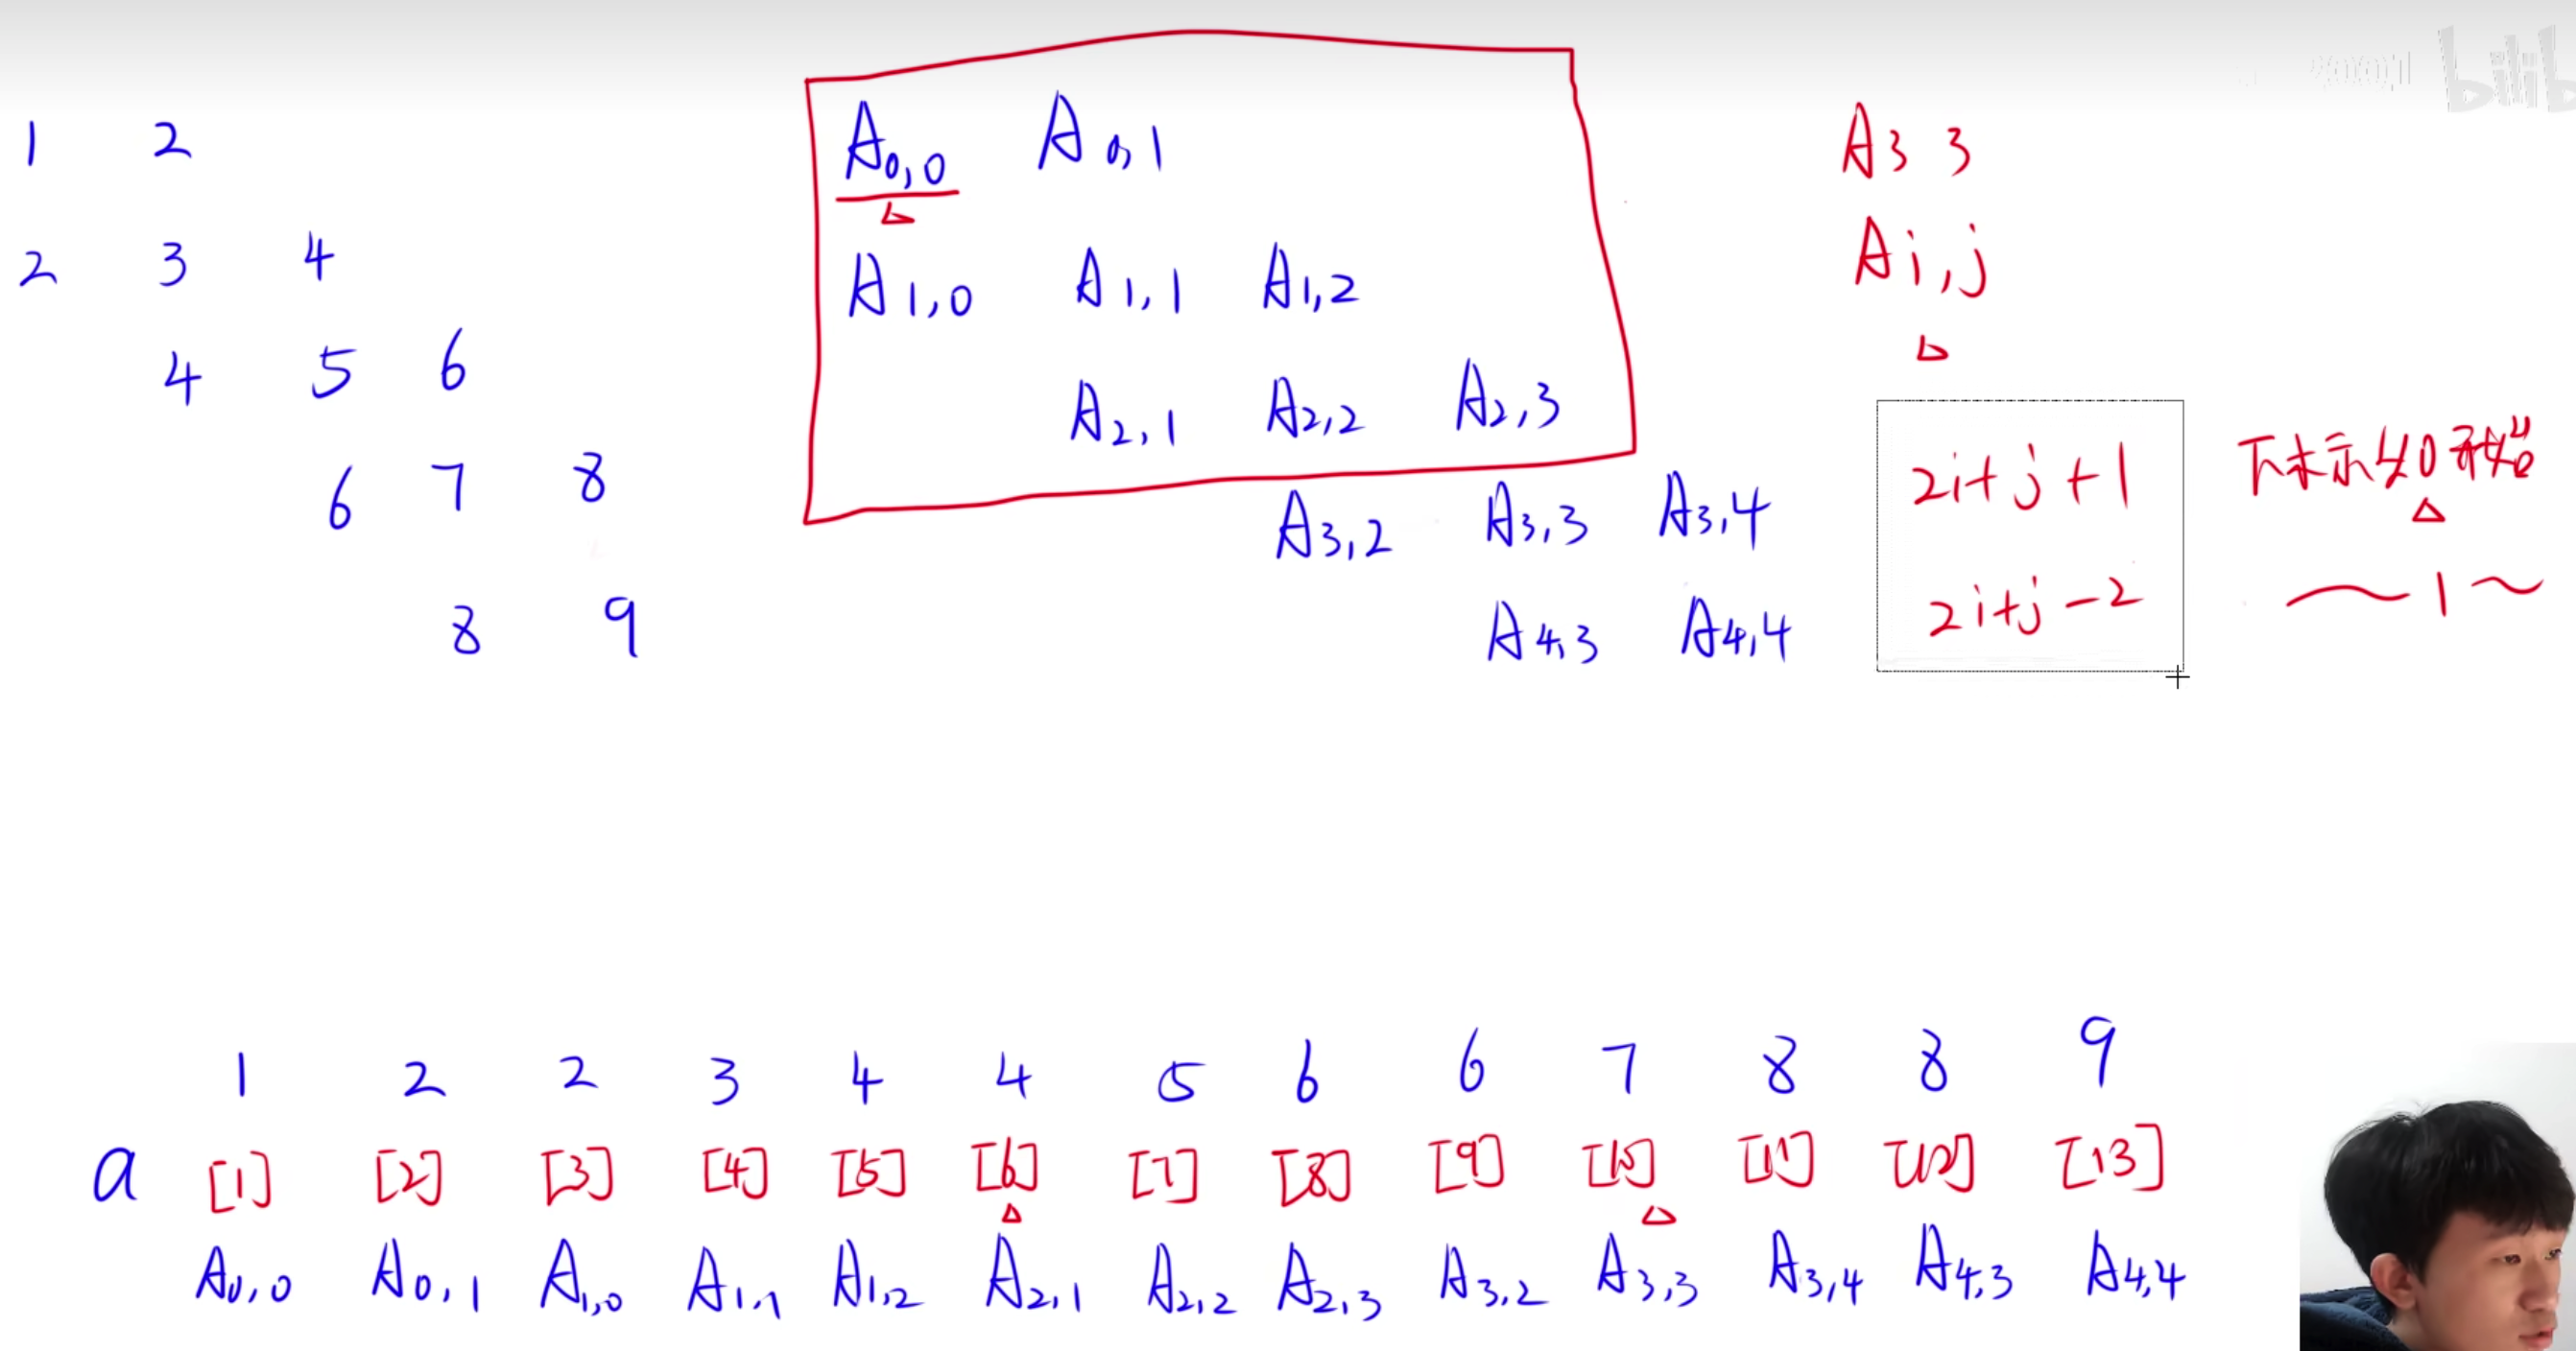 bilib
1 2
2 3 4
4 5 6
6 7 8
8 9
A0,0 A0,1
A1,0 A1,1 A1,2
A2,1 A2,2 A2,3
A3,2 A3,3 A3,4
A4,3 A4,4
A3 3
Ai,j
2i+j+1 下标从0开始
2i+j-2 ～1～
1 2 2 3 4 4 5 6 6 7 8 8 9
a [1] [2] [3] [4] [5] [6] [7] [8] [9] [10] [11] [12] [13]
A0,0 A0,1 A1,0 A1,1 A1,2 A2,1 A2,2 A2,3 A3,2 A3,3 A3,4 A4,3 A4,4